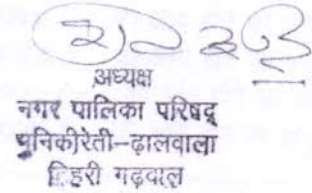 अध्यक्ष
नगर पालिका परिषद्
मुनिकीरेती-ढ़ालवाला
टिहरी गढ़वाल